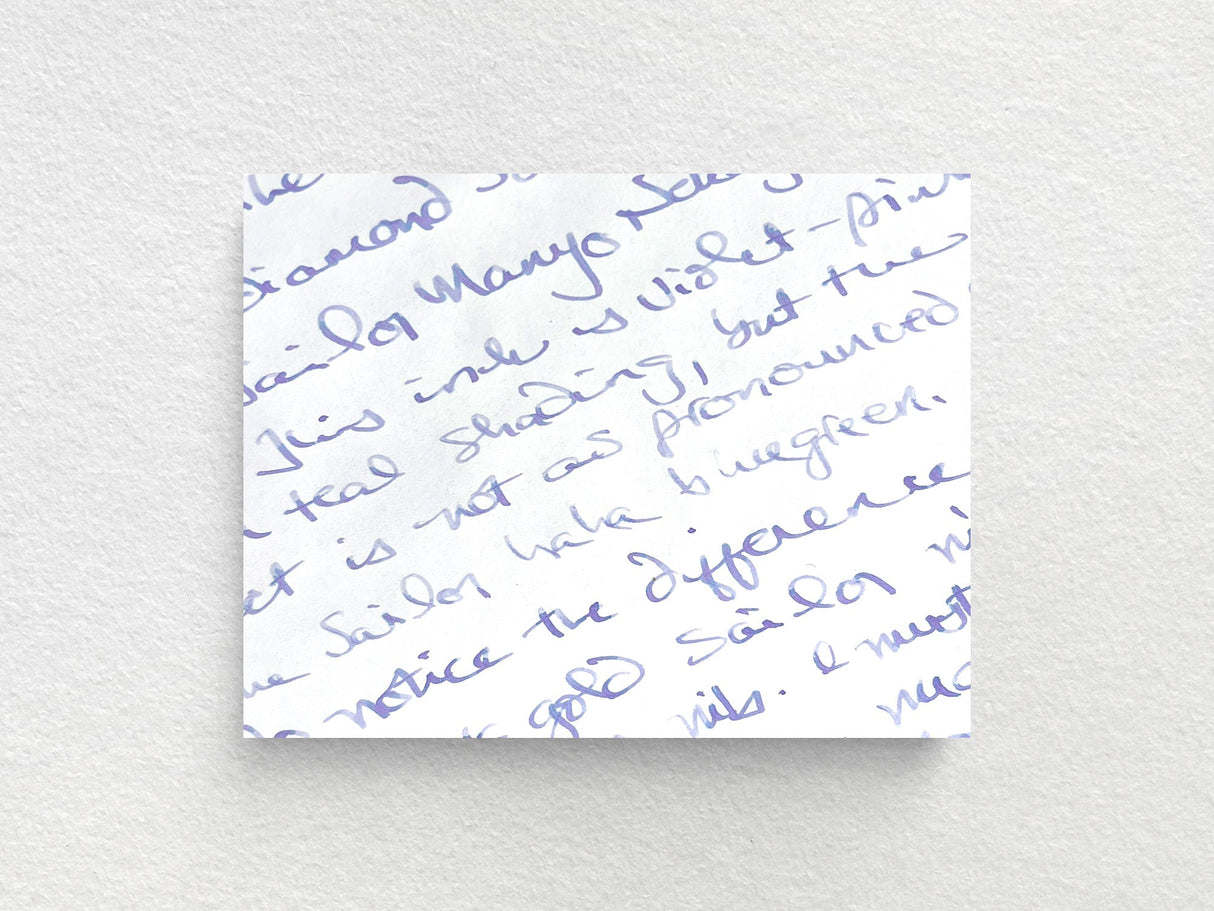 the
Diamond
Sailor Manyo
This ink is violet-pink
teal shading, but the
is not as pronounced
Sailor haha bluegreen.
notice the difference
gold Sailor
nib. I must